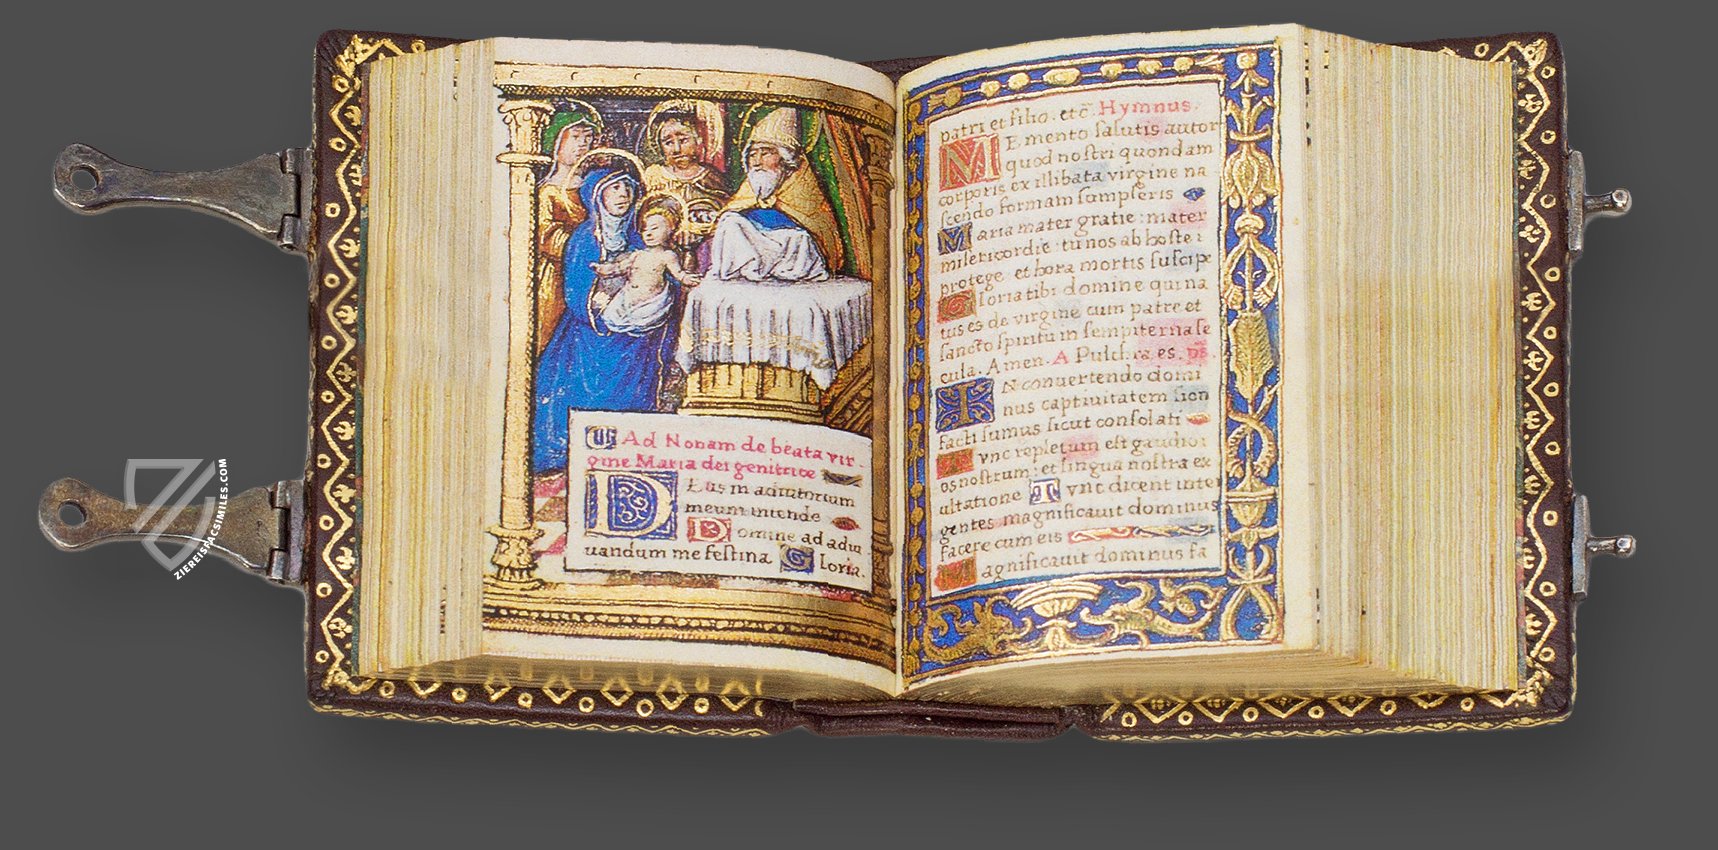 Ad Nonam de beata vir-
gine Maria dei genitrice
DEus in adiutorium
meum intende
Domine ad adiu
uandum me festina Gloria.
patri et filio. etc̄. Hymnus.
MEmento salutis autor
quod nostri quondam
corporis ex illibata virgine na
scendo formam sumpseris
Maria mater gratie: mater
misericordie: tu nos ab hoste
protege et hora mortis suscipe
Gloria tibi domine qui na
tus es de virgine cum patre et
sancto spiritu in sempiterna se
cula. Amen. A Pulch. ra es. ps.
IN conuertendo domi
nus captiuitatem sion
facti sumus sicut consolati
Tunc repletum est gaudio
os nostrum: et lingua nostra ex
ultatione Tunc dicent inter
gentes magnificauit dominus
facere cum eis
Magnificauit dominus fa
ZIEREISFACSIMILES.COM